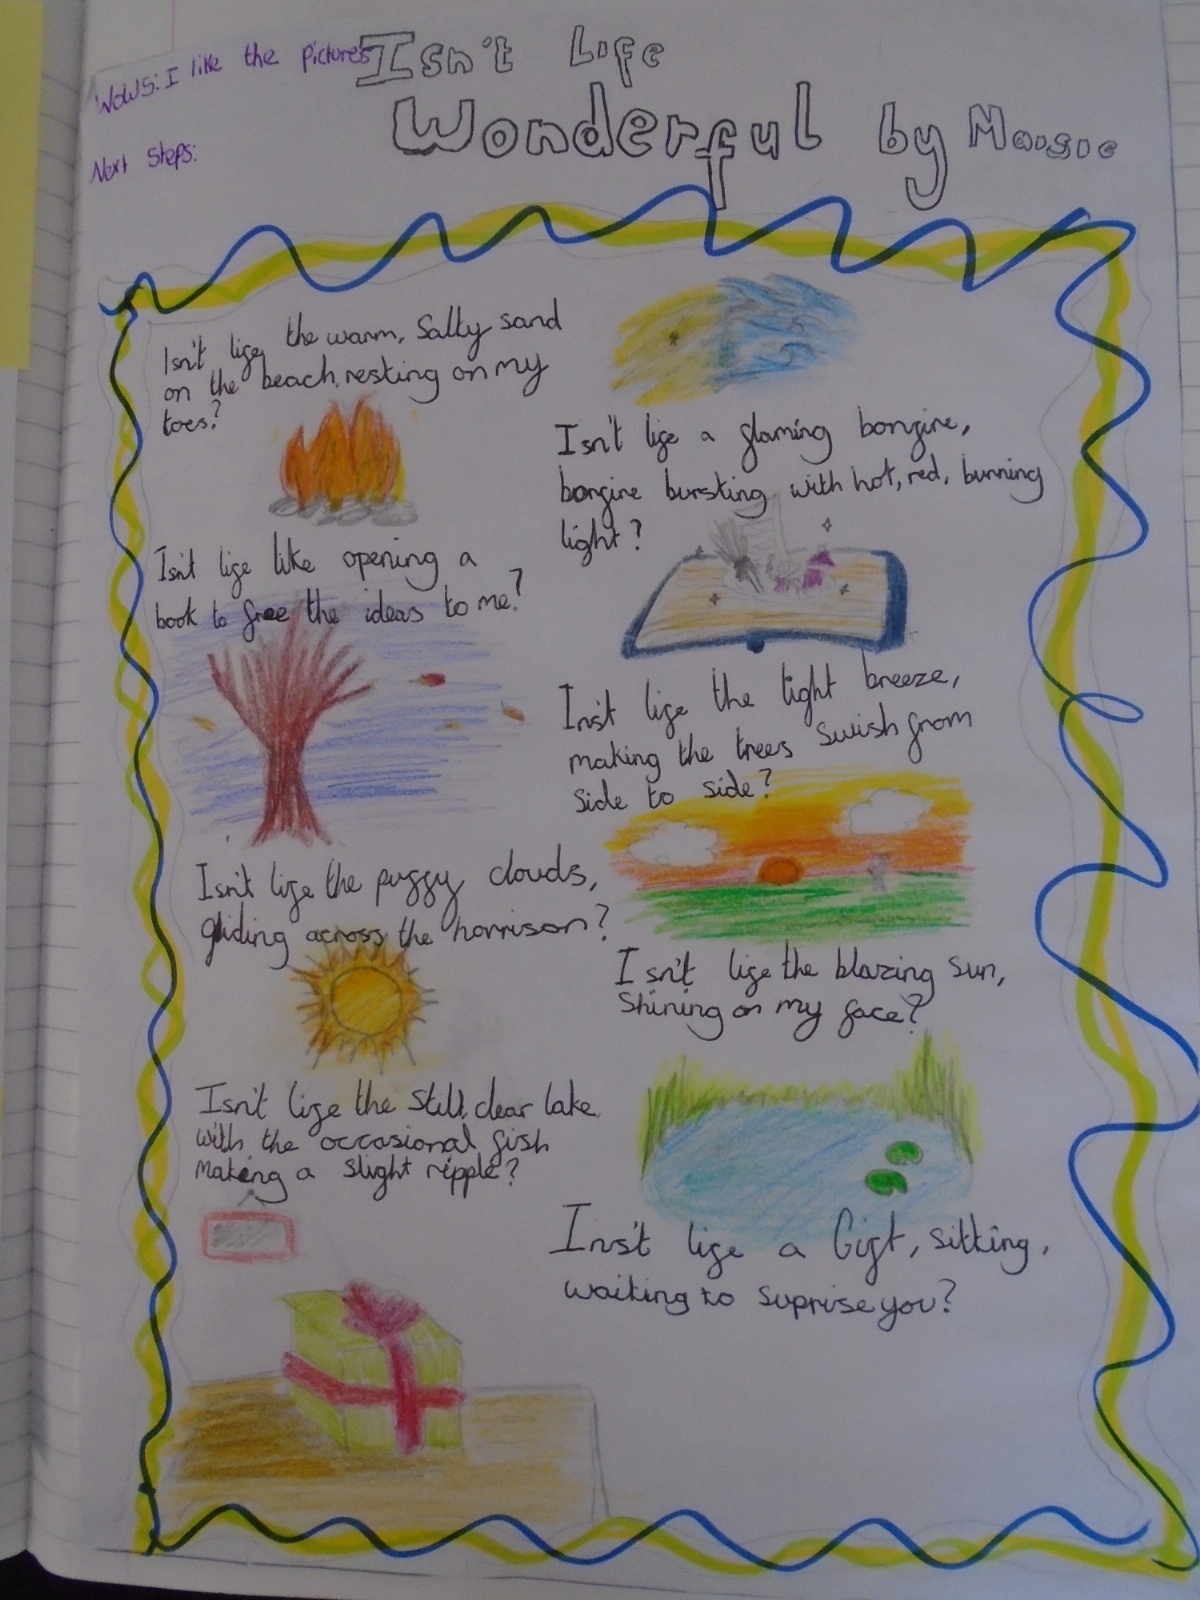 Wows: I like the pictures
Next Steps:
Isn't Life
Wonderful by Maisie
Isn't life the warm, salty sand
on the beach, resting on my
toes?
Isn't life a flaming bonfire,
bonfire bursting with hot, red, burning
light?
Isn't life like opening a
book to free the ideas to me?
Ins't life the light breeze,
making the trees swish from
side to side?
Isn't life the puffy clouds,
gliding across the horrison?
Isn't life the blazing sun,
Shining on my face?
Isn't life the still, clear lake
with the occasional fish
making a slight ripple?
Ins't life a Gift, sitting,
waiting to suprise you?